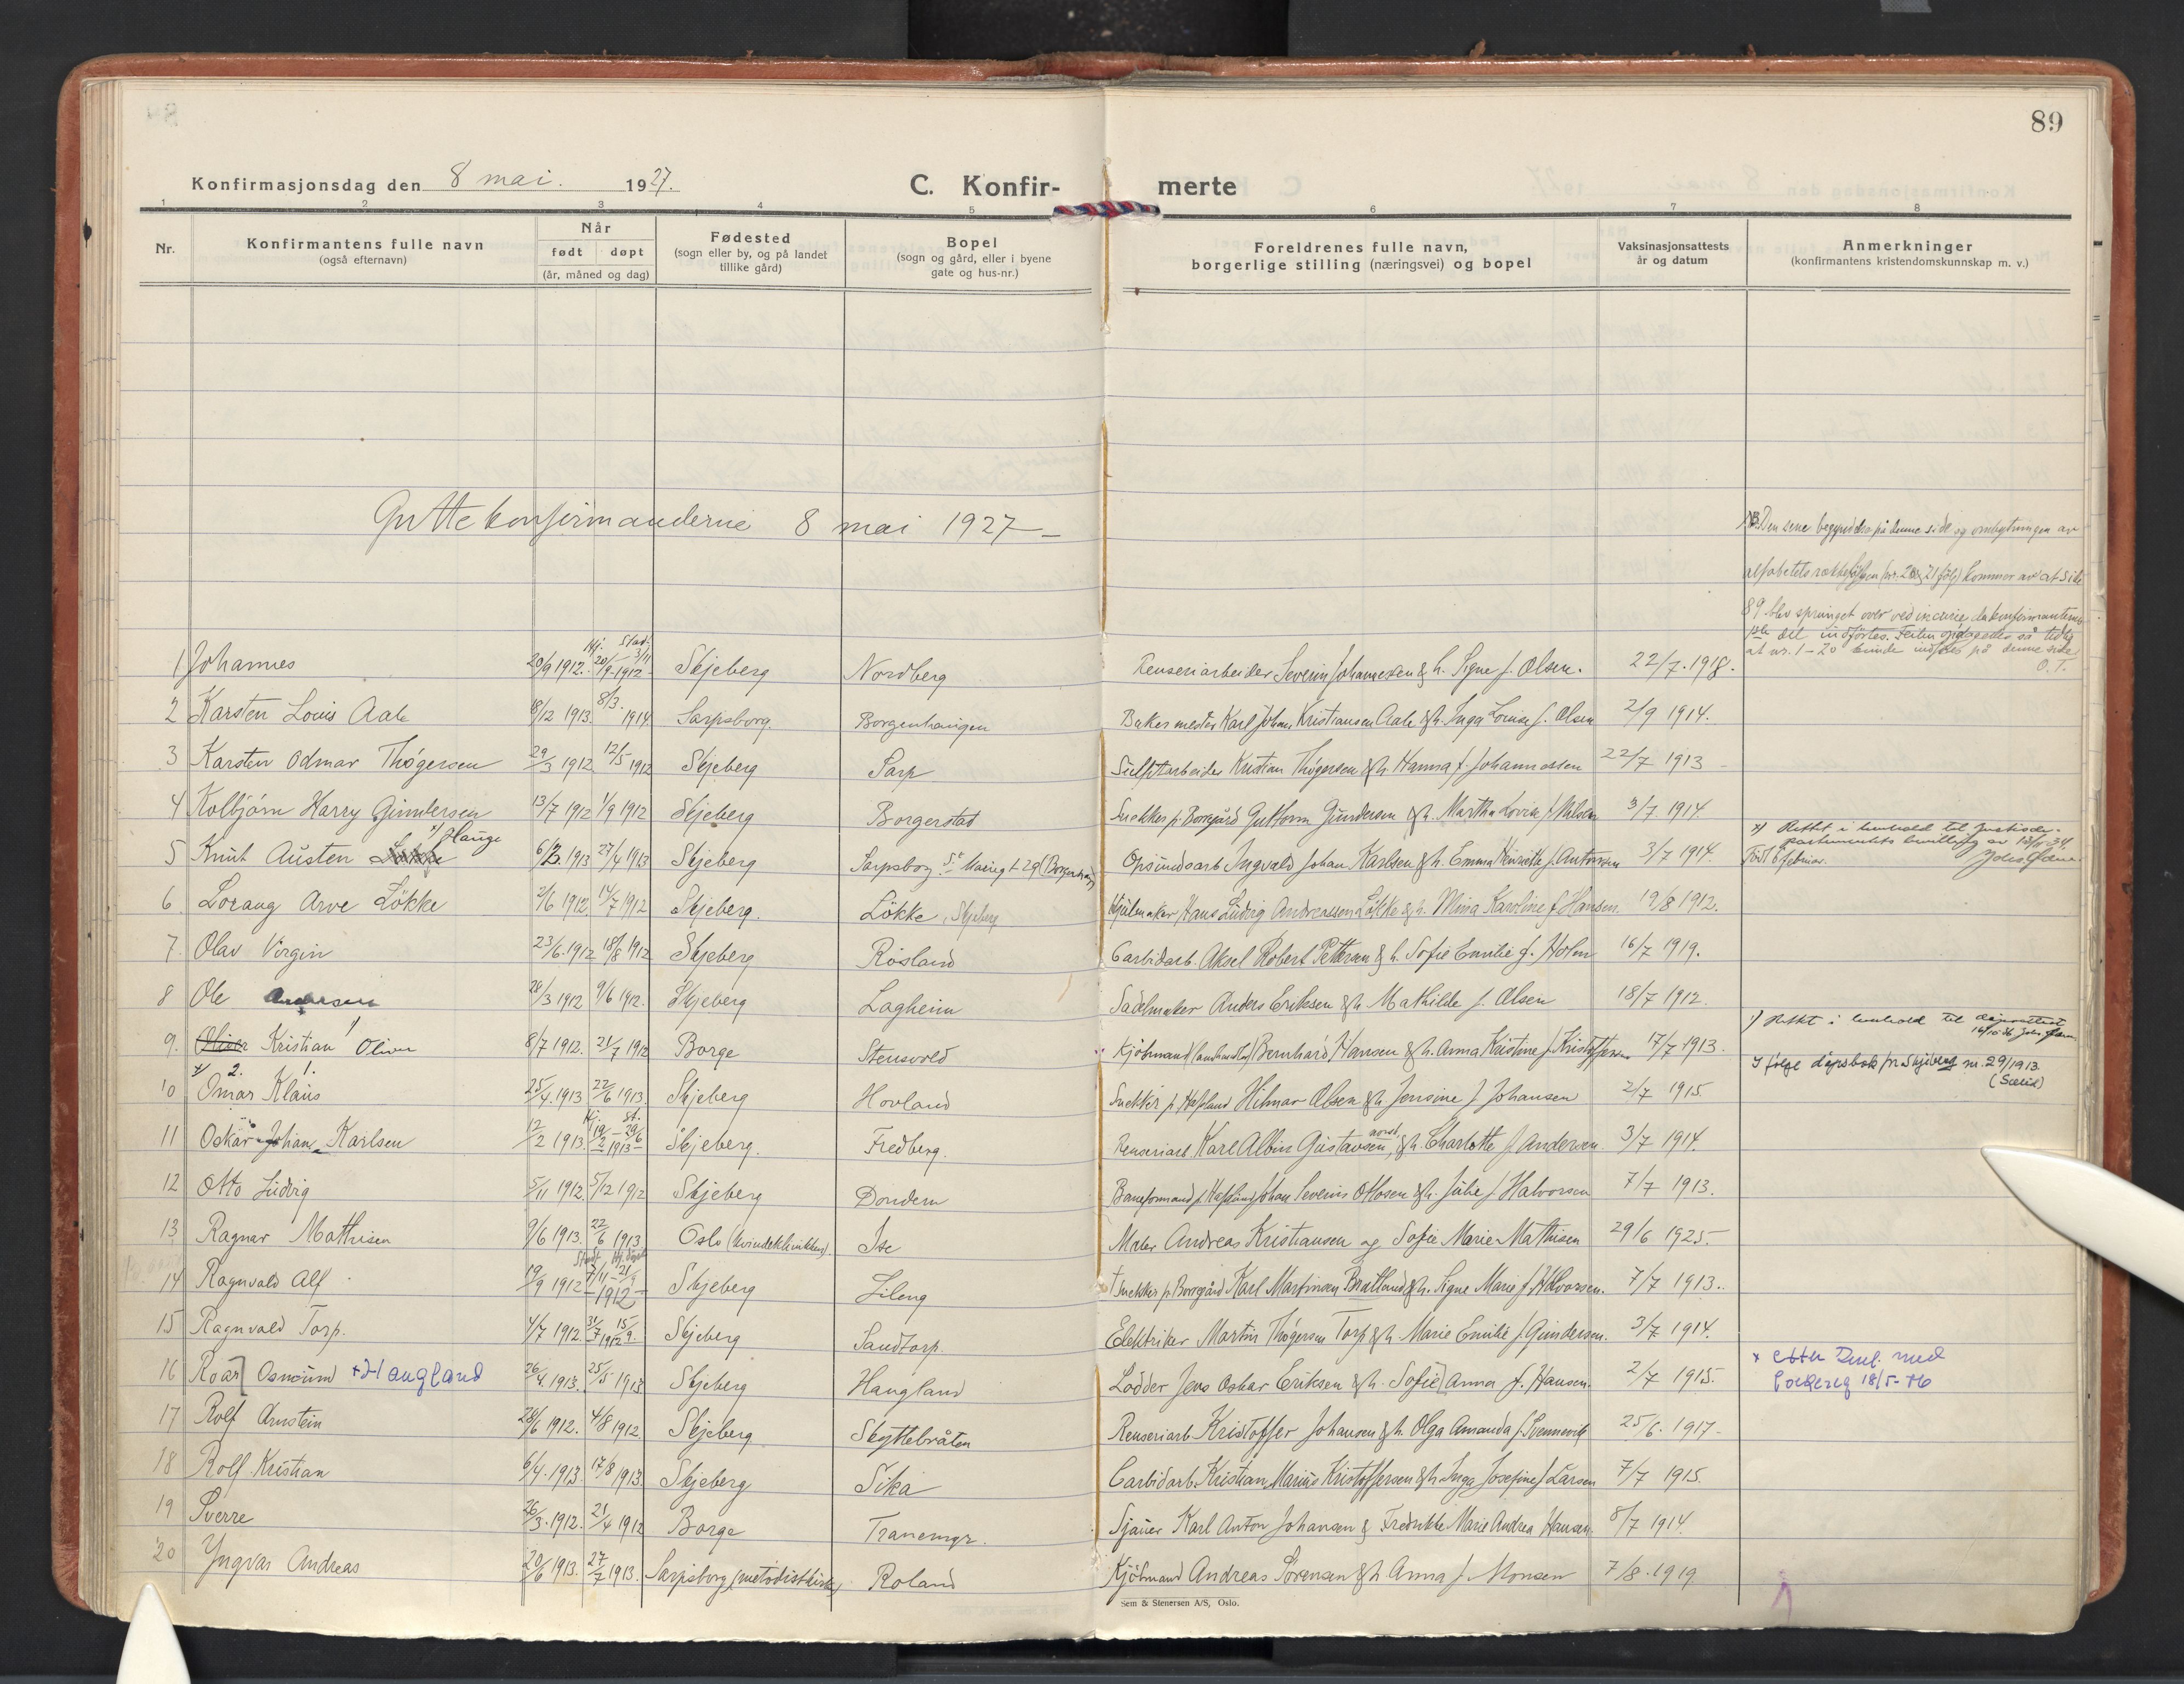 89
Konfirmasjonsdag den 8 mai. 1927.
C. Konfir- merte
1 2 3 4 5 6 7 8
Nr.
Konfirmantens fulle navn
(også efternavn)
Når
født døpt
(år, måned og dag)
Fødested
(sogn eller by, og på landet
tillike gård)
Bopel
(sogn og gård, eller i byene
gate og hus-nr.)
Foreldrenes fulle navn,
borgerlige stilling (næringsvei) og bopel
Vaksinasjonsattests
år og datum
Anmerkninger
(konfirmantens kristendomskunnskap m. v.)
Guttekonfirmanderne 8 mai 1927 –
NB. Den sene begyndelse på denne side og ombytningen av
alfabetets rækkefølgen (nr. 20 og 21 følg) kommer av at side
89 blev sprunget over ved incurie da konfirmanternes
1ste del indførtes. Feilen opdagedes så tidlig
at nr. 1-20 kunde indføres på denne side
O.T.
1 Johannes 20/9 1912. Hj. 20/9 Stad. 3/11 1912 Skjeberg Nordberg Renseriarbeider Severin Johannesen & h. Signe f. Olsen. 22/7. 1918.
2 Karsten Louis Aale 8/12 1913. 8/3. 1914 Sarpsborg. Borgenhaugen Bakermester Karl Johan Kristiansen Aale & h. Inga Louise f. Olsen 2/9 1914.
3 Karsten Odmar Thøgersen 29/3 1912. 12/5 1912 Skjeberg Sarp Sulfitarbeider Kristian Thøgersen & h. Hanna f. Johannessen 22/7 1913 –
4 Kolbjørn Harry Gundersen 13/7 1912 1/9 1912 Skjeberg Borgerstad Snekker p. Borregård Guttorm Gundersen & h. Martha Lovise f. Nilsen 3/7 1914.
5 Knut Austen Løkke x) Hauge 6/2. 1913 27/4 1913 Skjeberg Sarpsborg St Mariegt 29 (Borgenhaug) Opsindsarb Ingvald Johan Karlsen & h. Emma Henriette f. Antonsen 3/7 1914.
x) Rettet i henhold til Justisde-
partementets bevilling av 13/11-34.
Født 6 februar.
6. Lorang Arve Løkke 2/6 1912 14/7 1912 Skjeberg. Løkke, Skjeberg Hjulmaker Hans Ludvig Andreassen Løkke & h. Mina Karoline f. Hansen. 19/8 1912.
7. Olav Virgin 23/6. 1912 18/8 1912 Skjeberg Røsland Carbidarb. Aksel Robert Pettersen & h. Sofie Emilie f. Holm 16/7 1919.
8 Ole Andersen 28/3 1912 9/6 1912. Skjeberg Lagheim Sadelmaker Anders Eriksen & h. Mathilde f. Olsen 18/7 1912.
9. Oliver Kristian 1) Oliver 8/7 1912. 21/7 1912 Borge Stensvold Kjøbmand (landhandler) Bernhard Hansen & h. Anna Kristine f. Kristoffersen 17/7 1913.
1) Rettet i henhold til dåpsattest
16/10-36
x) 2. 1.
10 Omar Klaus 25/4. 1913 22/6 1913. Skjeberg Hovland Snekker p. Hafslund Hilmar Olsen & h. Jensine f. Johansen 2/7 1915.
I følge dåpsbok for Skjeberg nr. 29/1913
11 Oskar Johan Karlsen 12/2 1913. Hj. 19/2 st. 29/6 1913 – Skjeberg. Fredberg. Renseriarb. Karl Albin Gustavsen, & h. Charlotte f. Andersen 3/7 1914.
12 Otto Ludvig 5/11 1912. 5/12 1912 Skjeberg Dondern Baneformand p. Hafslund Johan Severin Ottosen & h. Julie f. Halvorsen 7/7 1913.
13 Ragnar Mathisen 9/6 1913. 22/6 1913 Oslo (kvindeklinikken). Ise Maler Andreas Kristiansen og Sofie Marie Mathisen 29/6 1925.
14 Ragnvald Alf 19/9 1912 Stadf. 7/11 – Hj. døpt 21/9 – 1912 – Skjeberg Lileng † Snekker p. Borregård Karl Martinsen Bratland & h. Signe Marie f. Halvorsen. 7/7 1913.
15 Ragnvald Torp. 4/7 1912. 31/7 15/9. 1912 Skjeberg Sandtorp. Elektriker Martin Thøgersen Torp & h. Marie Emilie f. Gundersen. 3/7 1914.
16 Roar Osmund + Haugland 26/4. 1913. 25/5 1913 Skjeberg Haugland Lodder Jens Oskar Eriksen & h. Sofie Anna f. Hansen. 2/7 1915.
x etter
18/5-46
17 Rolf Arnstein 28/6 1912. 4/8 1912. Skjeberg Skyttebråten Renseriarb. Kristoffer Johansen & h. Olga Amanda f. Svennevik 25/6. 1917 –
18 Rolf Kristian 6/4. 1913. 17/8 1913. Skjeberg Sika Carbidarb. Kristian Marius Kristoffersen & h. Inga Josefine f. Larsen 7/7 1915.
19 Sverre 26/3. 1912. 21/4 1912 Borge Tranemyr. Sjauer Karl Anton Johansen & Fredrikke Marie Andrea Hansen. 8/7 1914.
20 Yngvar Andreas 20/6 1913. 27/7 1913. Sarpsborg (metodistkirke) Roland Kjøbmand Andreas Sørensen & h. Anna f. Monsen 7/8. 1919
Sem & Stenersen A/S, Oslo.